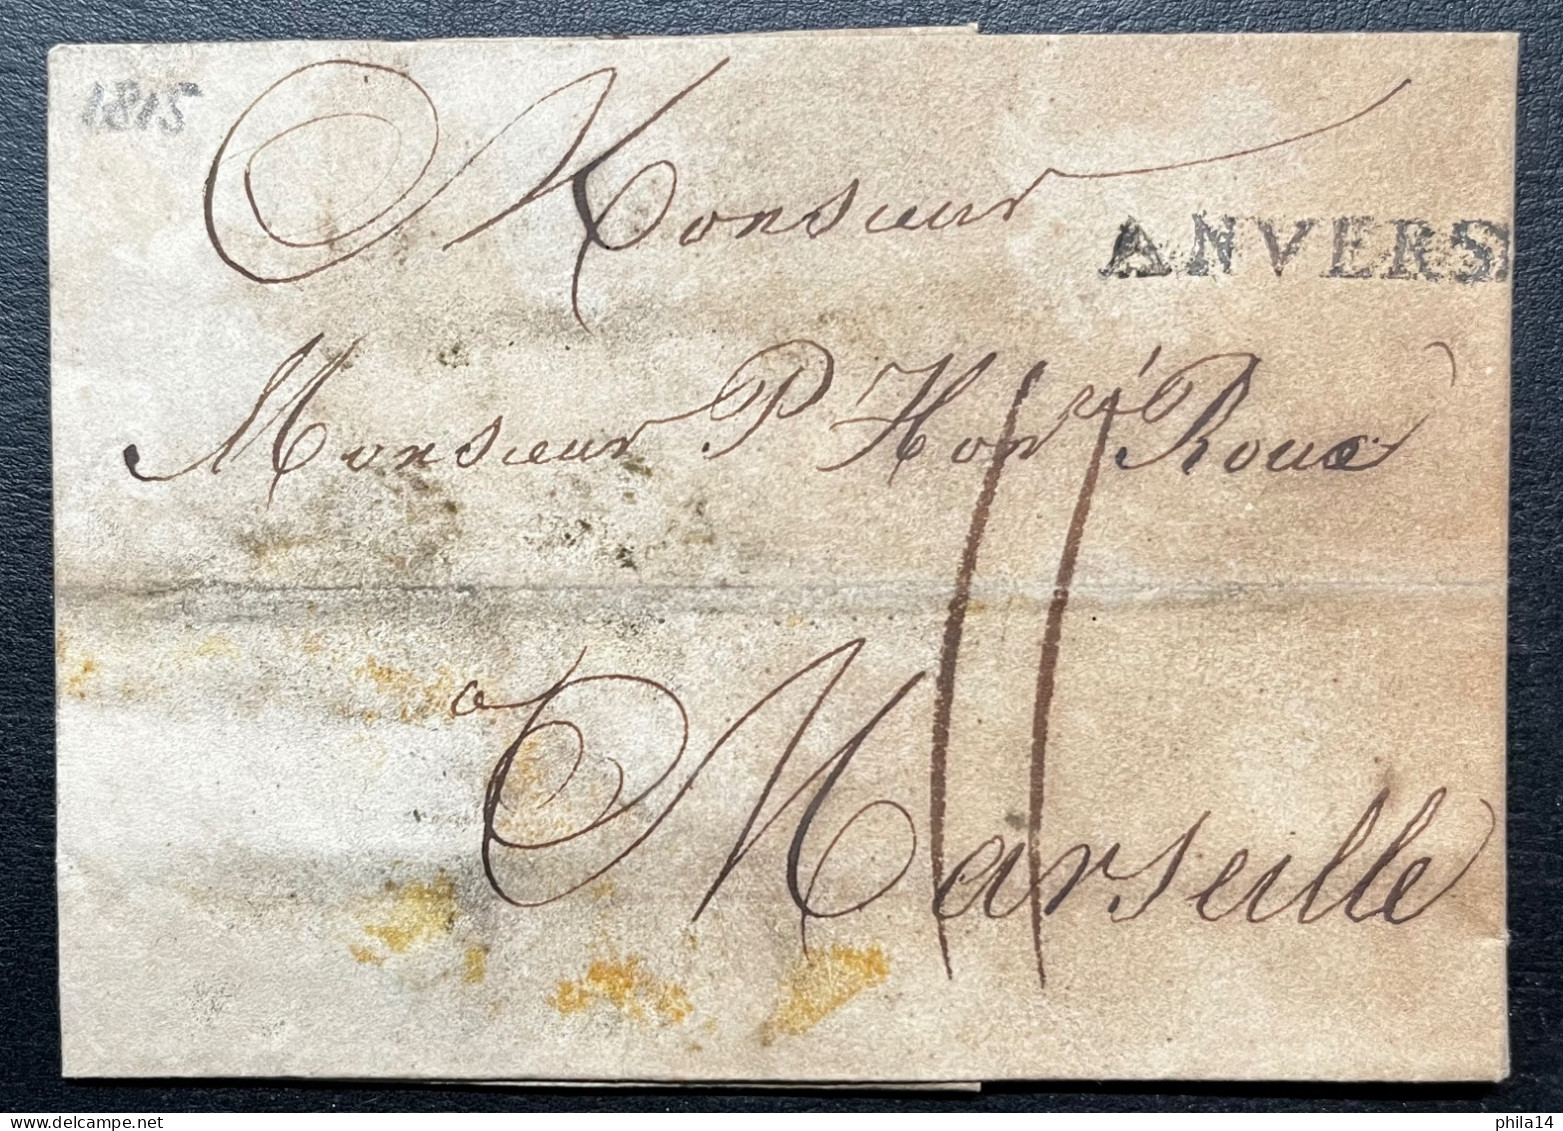 1815
Monsieur
ANVERS
Monsieur P. Honré Roux
11
a Marseille
www.delcampe.net
phila14